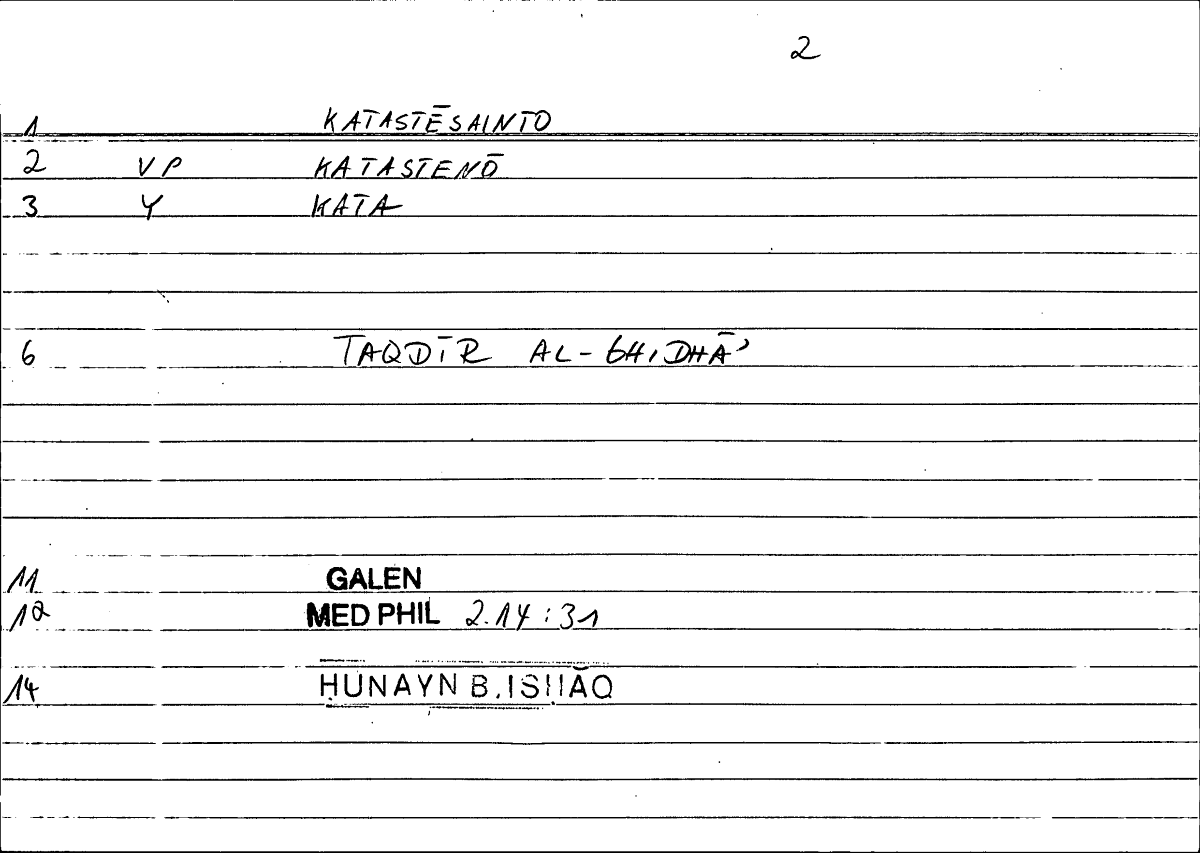 2
1 KATASTĒSAINTO
2 VP KATASTENŌ
3 Y KATA
6 TAQDĪR AL-GHIDHĀʾ
11 GALEN
12 MED PHIL 2.14:31
14 ḤUNAYN B. ISḤĀQ